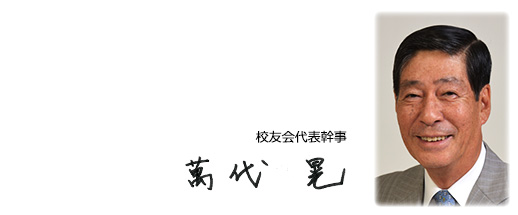 校友会代表幹事
萬代 晃